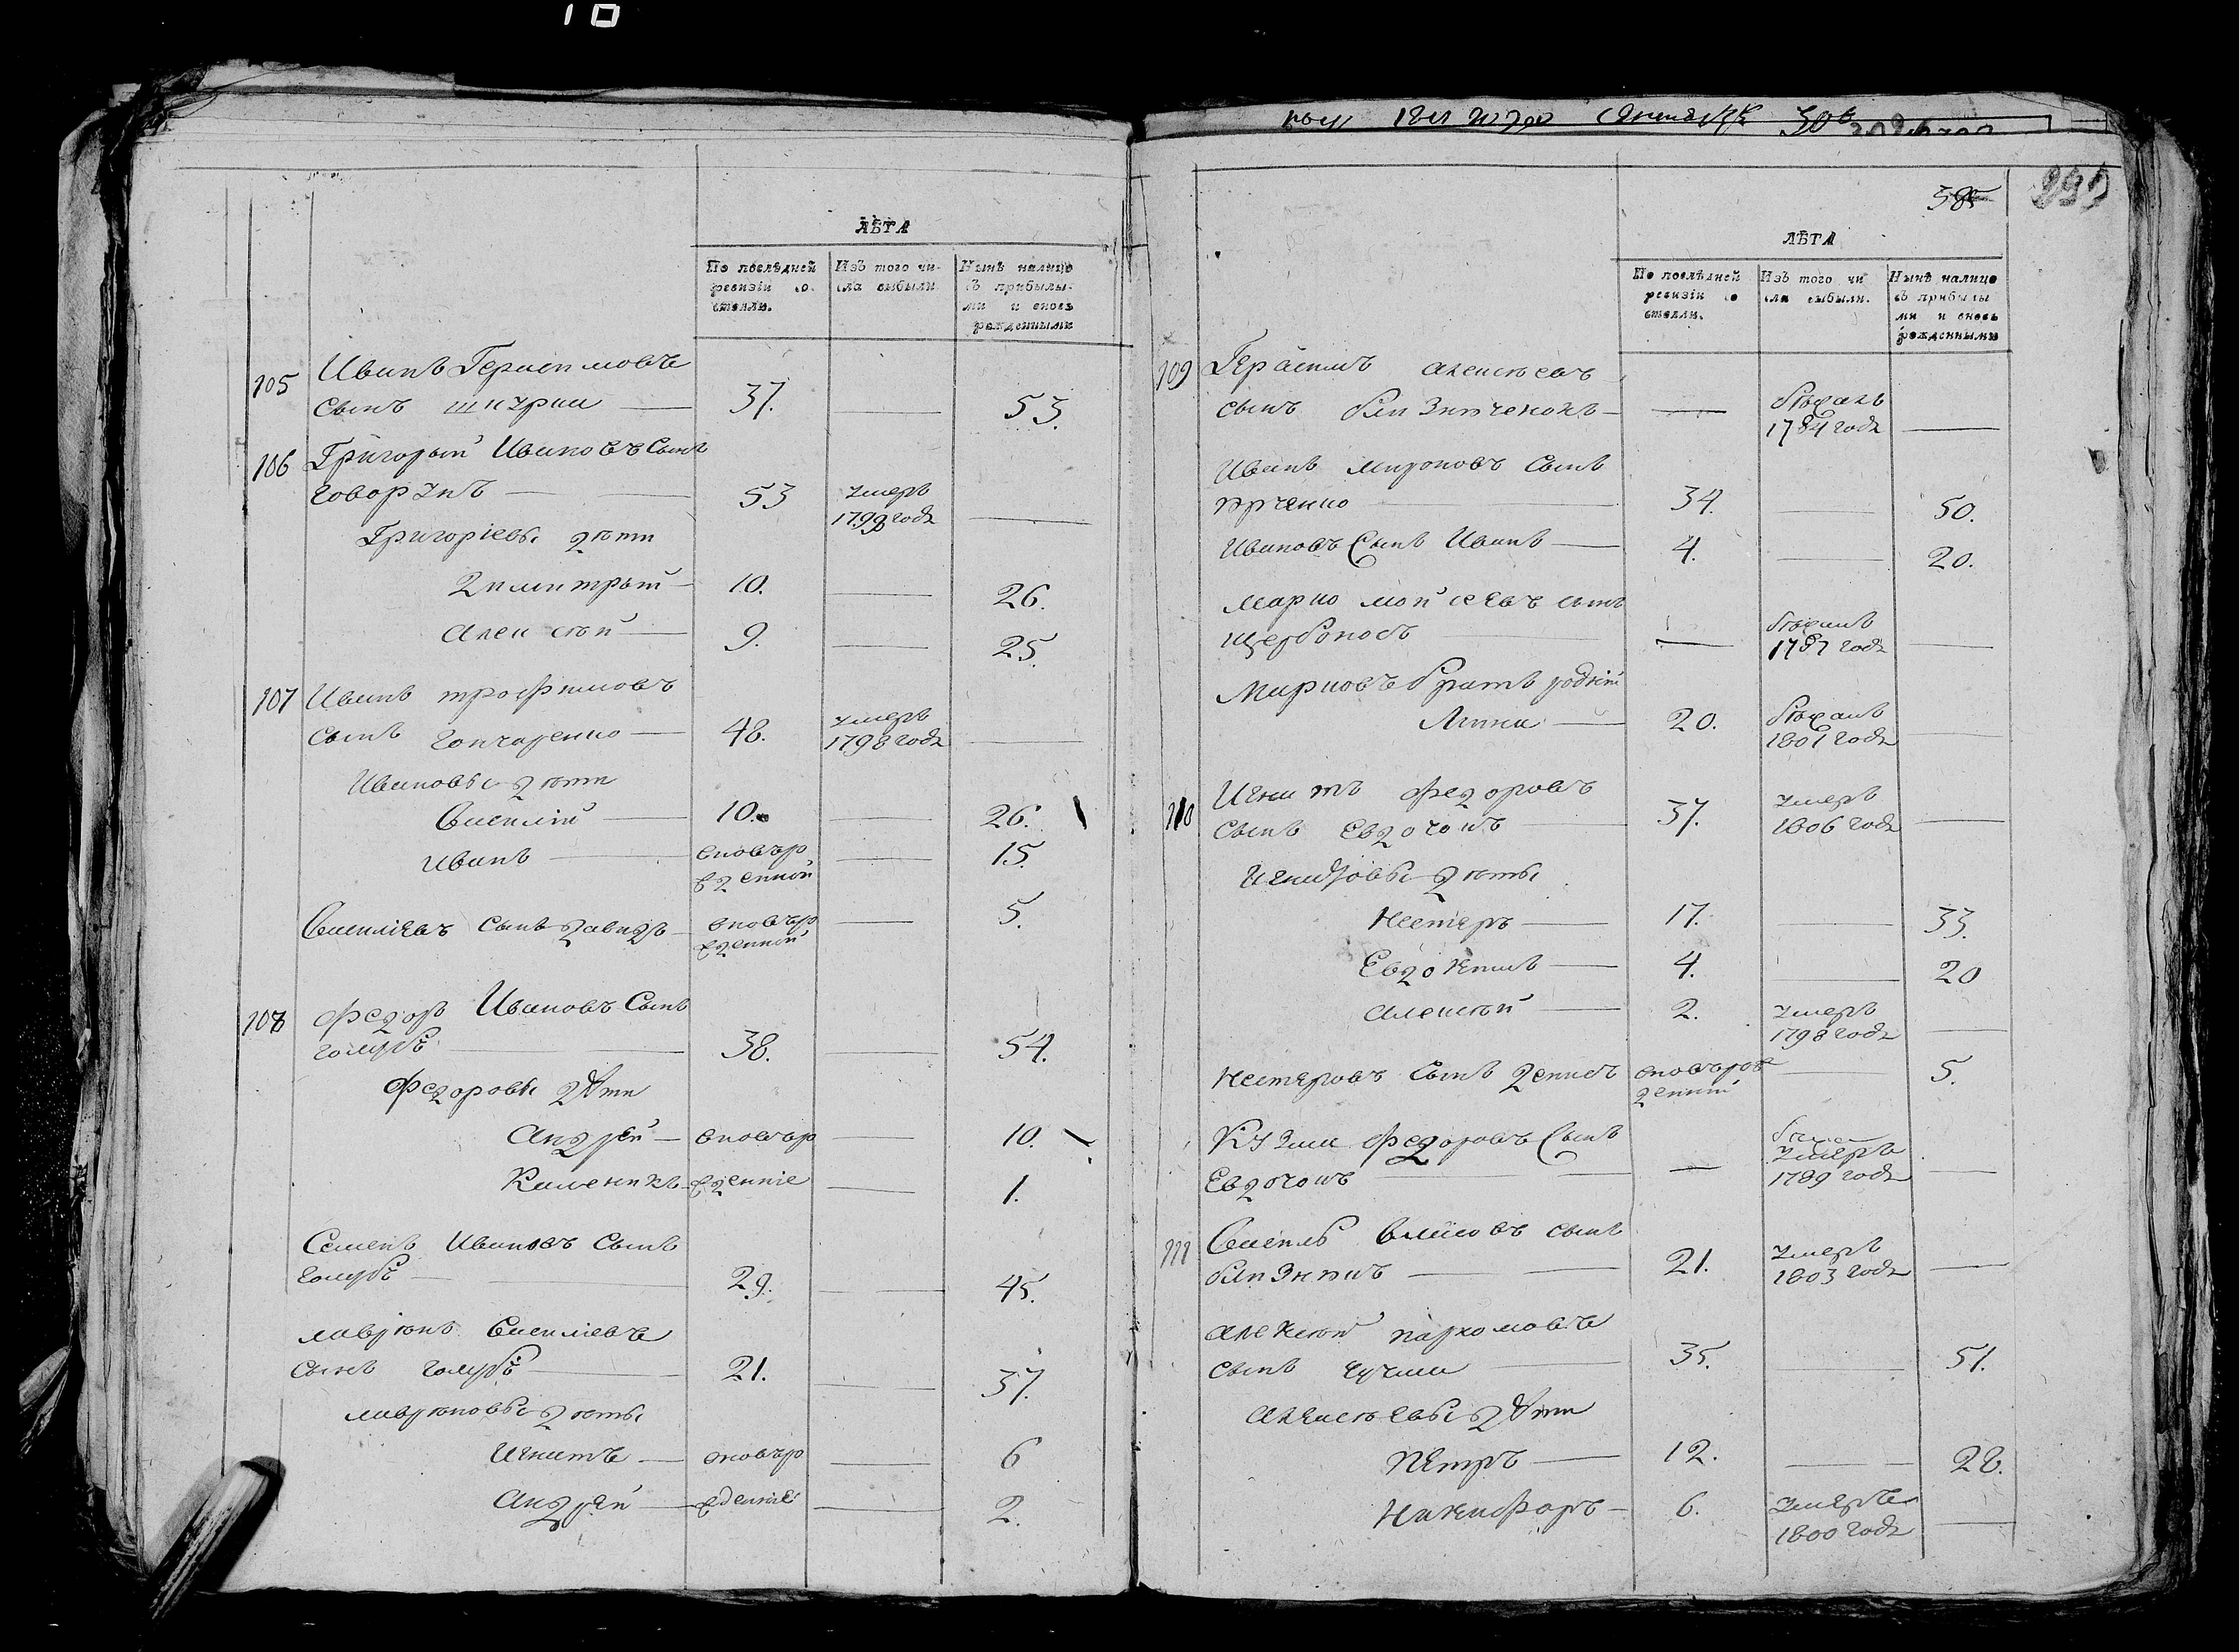 ЛѢТА
По послѣдней ревизіи состояли.
Изъ того числа выбыли
Нынѣ налицо съ прибылыми и вновь рожденными
105 Иванъ Герасимовъ
сынъ шкурка 37. 53.
106 Григорый Ивановъ Сынъ
говорунъ 53 умеръ
1799 годȣ
Григоріевы дѣти
Дмитрый 10. 26.
Алексѣй 9. 25.
107 Иванъ трофимовъ
сынъ гончаренко 48. умеръ
1798 годȣ
Ивановы дѣти
Василій 10. 26.
Иванъ вновьро 15.
жденной
Василіевъ сынъ давидъ вновьро 5.
жденной
108 федоръ Ивановъ Сынъ
голубъ 38. 54.
Федоровы дѣти
Андрей вновьро 10.
жденніе 1.
Семенъ Ивановъ Сынъ
голубъ 29. 45.
лаврѣнъ Василіевъ
сынъ голубъ 21. 37.
лаврѣновы дѣты
Игнатъ вновьро 6
Андрей жденніе 2.
385
ЛѢТА
По послѣдней ревизіи состояли.
Изъ того числа выбыли.
Нынѣ налицо съ прибылыми и вновь рожденными
109 Герасимъ Алексѣевъ
сынъ бѣжалъ
1784 годȣ
Иванъ мироновъ Сынъ
34. 50.
Ивановъ Сынъ Иванъ 4. 20.
Марко мойсеевъ сынъ
щербоносъ бѣжалъ
1787 годȣ
Марковъ братъ родній
20. бѣжалъ
1801 годȣ
110 Игнатъ Федоровъ
сынъ Евдочокъ 37. умеръ
1806 годȣ
Игнатовы дѣты
Нестеръ 17. 33.
Евдокимъ 4. 20
Алексѣй 2. умеръ
1798 годȣ
Нестеровъ Сынъ денисъ вновьрож 5.
денній
Кузма Федоровъ Сынъ
умеръ
Евдочокъ 1789 годȣ
111 Василь сынъ
21. умеръ
1803 годȣ
Алексѣй пархомовъ
сынъ 35. 51.
Алексѣевы дѣти
Петръ 12. 28.
Никифоръ 6. умеръ
1800 годȣ